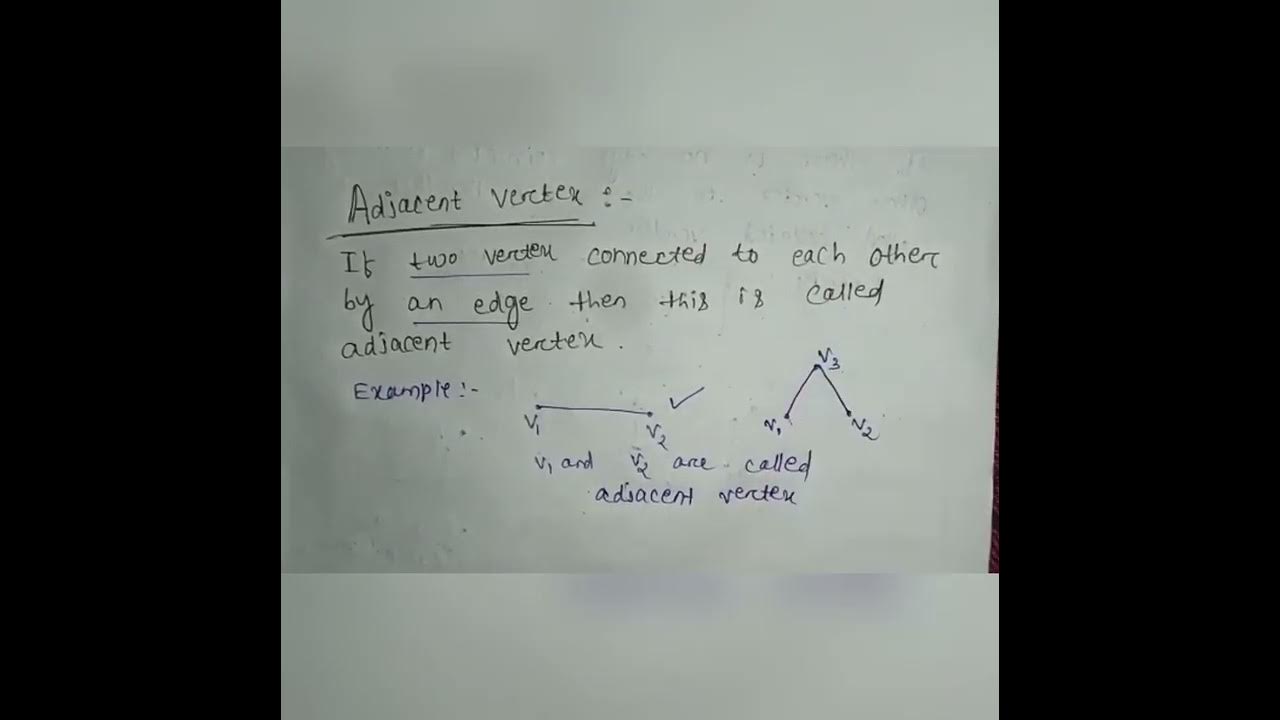 Adjacent vertex :-
If two vertex connected to each other
by an edge then this is called
adjacent vertex.
Example :-
V1
V2
V3
V1
V2
V1 and V2 are called
adjacent vertex